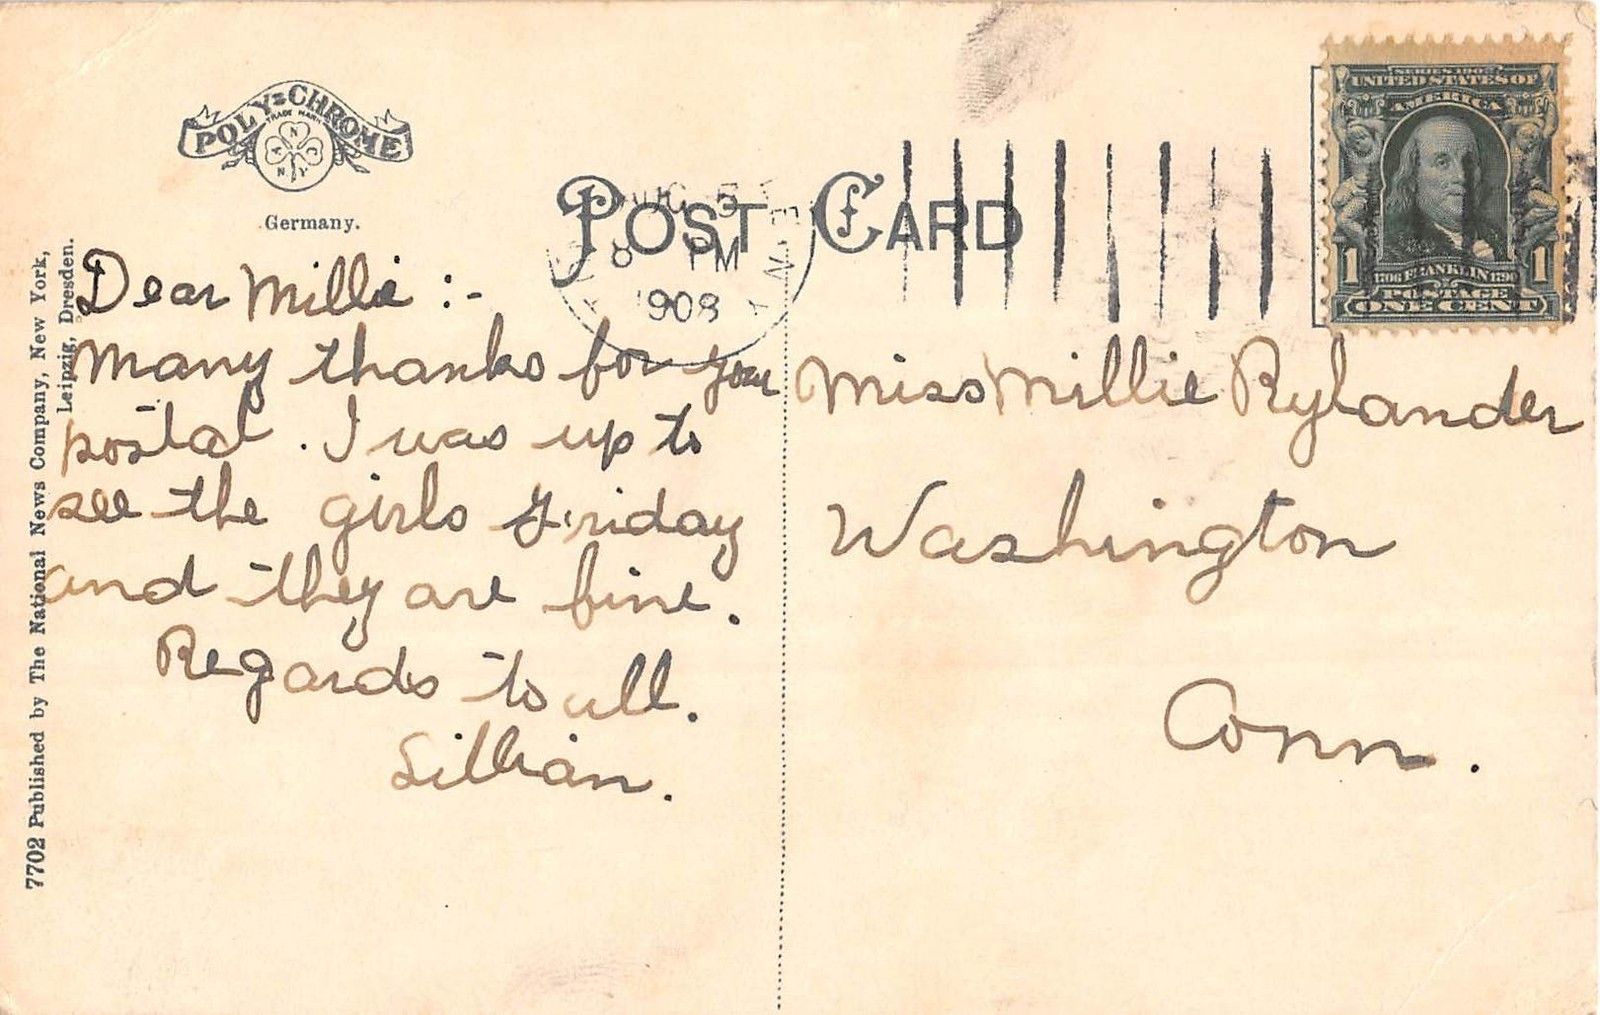 POLY=CHROME
TRADE MARK
A N C
N Y
Germany.
POST CARD
AUG 5
8 PM
1908
SERIES 1902
UNITED STATES OF
AMERICA
1706 FRANKLIN 1790
1 POSTAGE 1
ONE CENT
Dear Millie :-
Many thanks for your
postal. I was up to
see the girls Friday
and they are fine.
Regards to all.
Lillian.
Miss Millie Rylander
Washington
Conn.
7702 Published by The National News Company, New York,
Leipzig, Dresden.